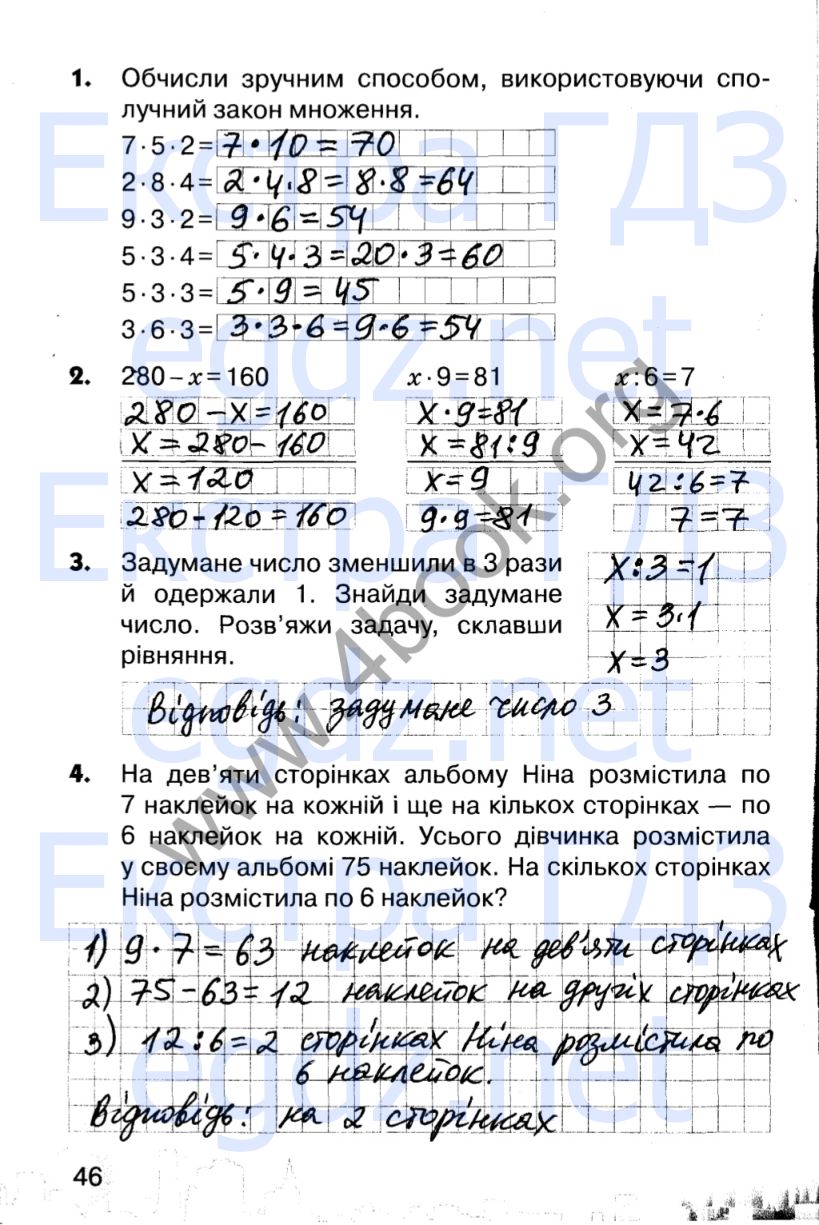 1. Обчисли зручним способом, використовуючи спо-
лучний закон множення.
7·5·2= 7·10=70
2·8·4= 2·4·8=8·8=64
9·3·2= 9·6=54
5·3·4= 5·4·3=20·3=60
5·3·3= 5·9=45
3·6·3= 3·3·6=9·6=54
2. 280–x=160 x·9=81 x:6=7
280–x=160 x·9=81 x=7·6
x=280–160 x=81:9 x=42
x=120 x=9 42:6=7
280–120=160 9·9=81 7=7
3. Задумане число зменшили в 3 рази x:3=1
й одержали 1. Знайди задумане
число. Розв’яжи задачу, склавши x=3·1
рівняння. x=3
Відповідь: задумане число 3
4. На дев’яти сторінках альбому Ніна розмістила по
7 наклейок на кожній і ще на кількох сторінках — по
6 наклейок на кожній. Усього дівчинка розмістила
у своєму альбомі 75 наклейок. На скількох сторінках
Ніна розмістила по 6 наклейок?
1) 9·7=63 наклейок на дев’яти сторінках
2) 75–63=12 наклейок на других сторінках
3) 12:6=2 сторінках Ніна розмістила по
6 наклейок.
Відповідь: на 2 сторінках
46
Екстра ГДЗ
egdz.net
Екстра ГДЗ
egdz.net
Екстра ГДЗ
egdz.net
www.4book.org